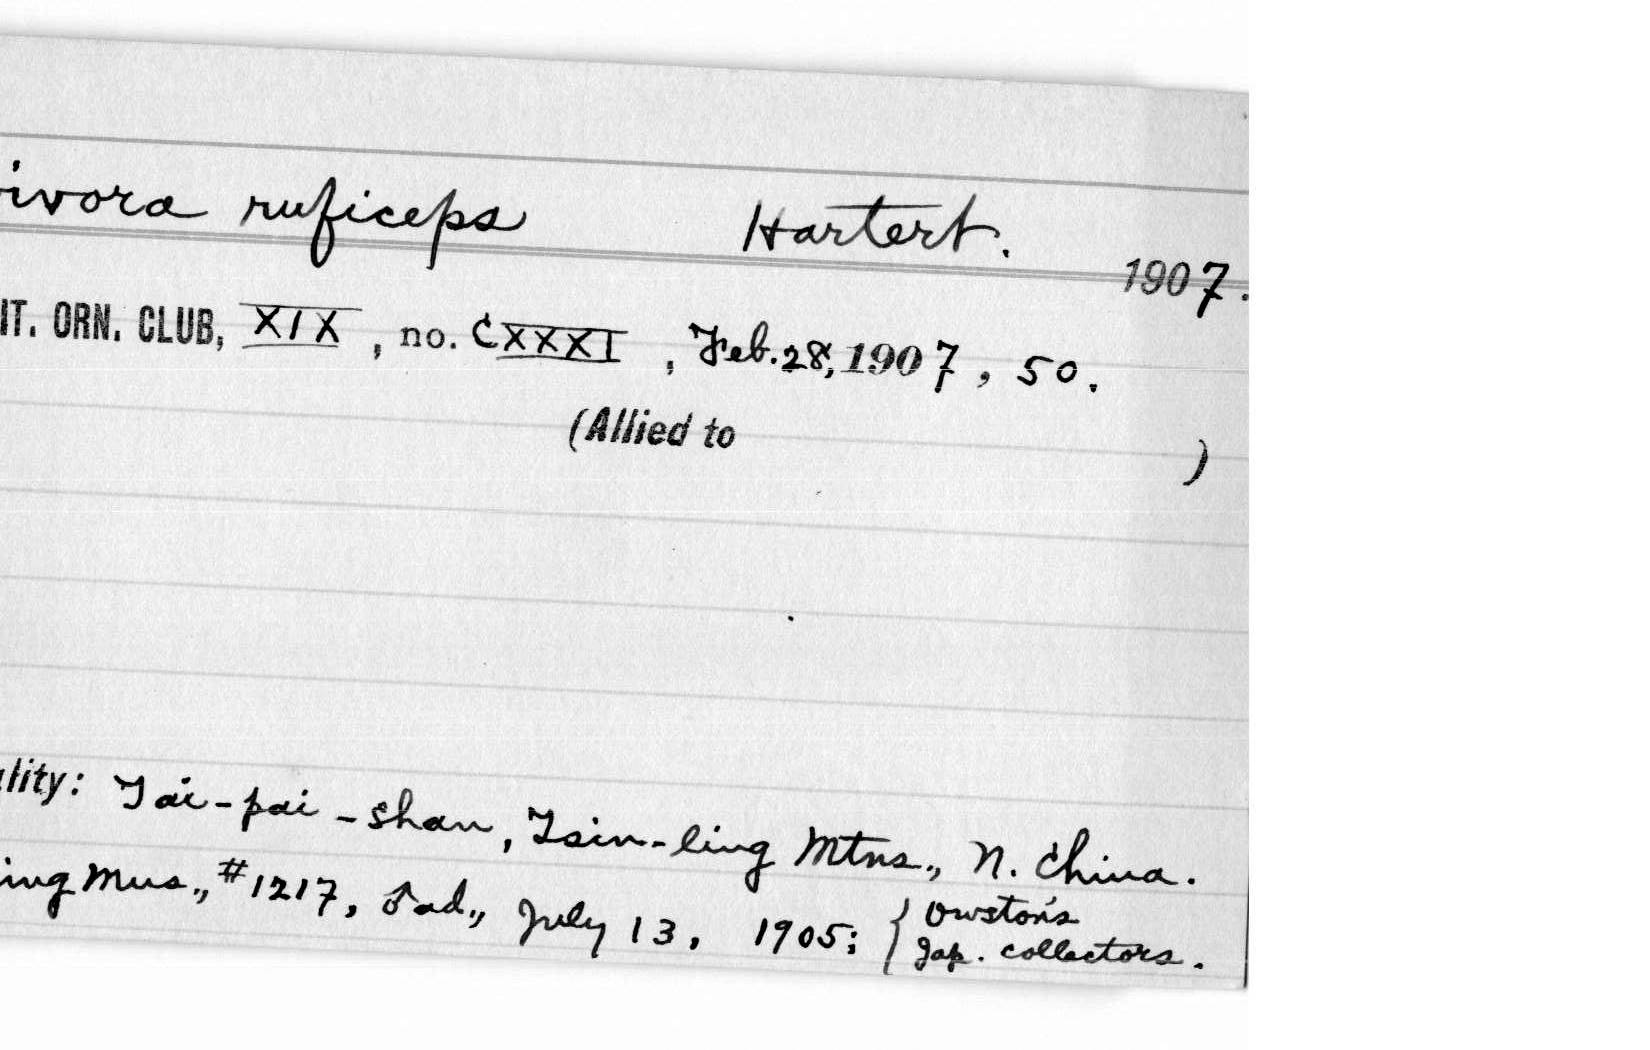 ivora ruficeps Hartert.
1907.
IT. ORN. CLUB, XIX, no. CXXXI, Feb. 28, 1907, 50.
(Allied to )
lity: Tai-pai-shan, Tsin-ling Mtns., N. China.
ing Mus., #1217, ♂ad., July 13, 1905; { Owston's
Jap. collectors.